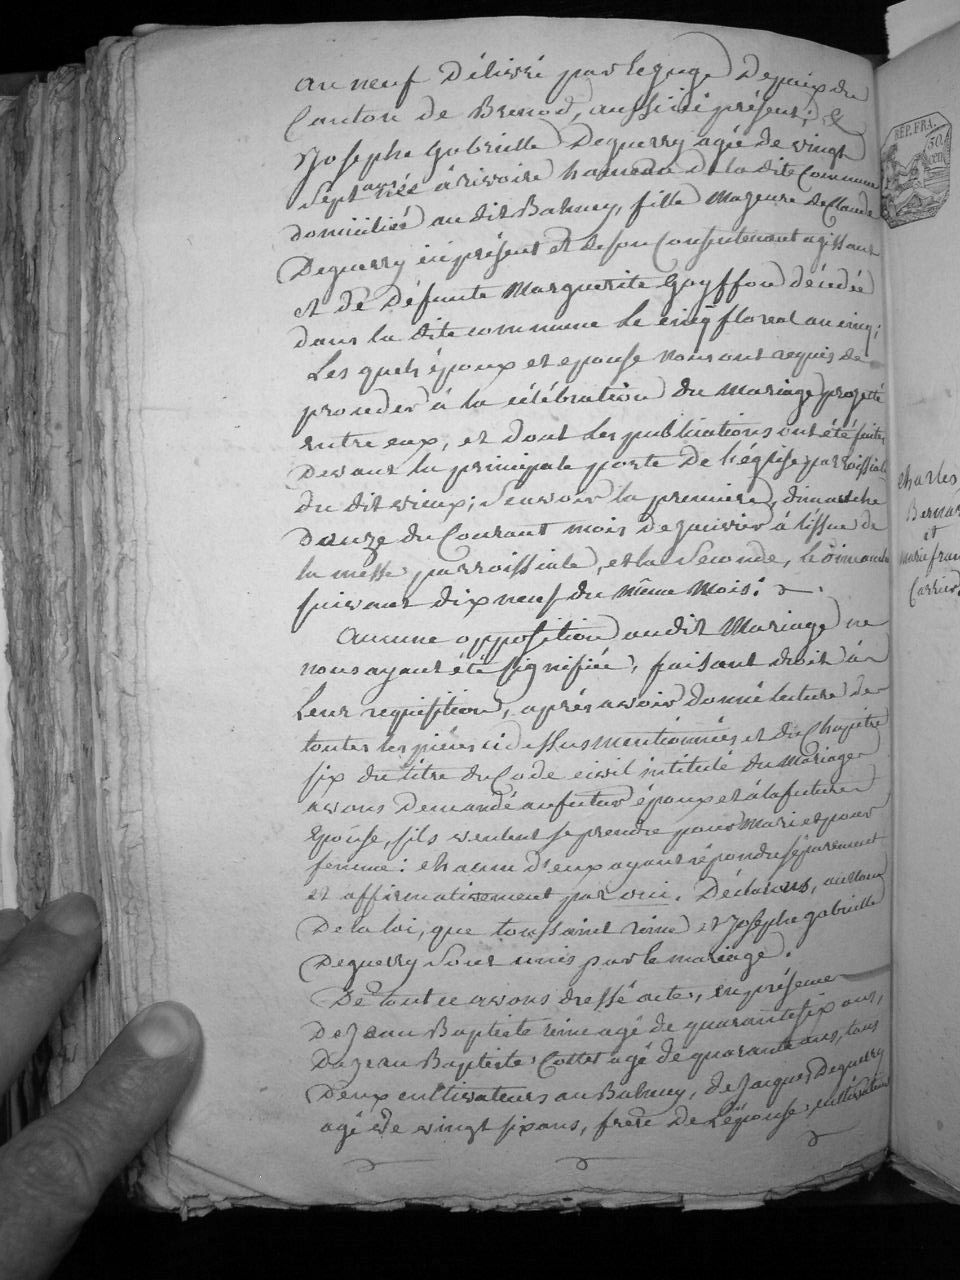 an neuf Délivré par le juge De paix du
Canton de Brenod, aussi ici présent; &
Josephe Gabrielle Deguerry agée de vingt
sept ans née à rivoire hameau de la dite Commune
domiciliée au dit Balmey, fille Majeure de Claude
Deguerry ici présent et de son Consentement agissant
et de Défunte Marguerite Goyffon décédée
dans la dite commune le cinq floreal an cinq;
Les quels époux et epouse nous ont requis de
proceder à la célébration du Mariage projetté
entre eux, et dont les publications ont été faites
Devant la principale porte De l'eglise parroissiale
du dit vieux; Scavoir la premiere, dimanche
Douze du Courant mois de janvier à l'issue de
la messe parroissiale, et la Seconde, le dimanche
suivant dix neuf du même Mois.
Aucune opposition au dit Mariage ne
nous ayant été signifiée, faisant droit à
Leur requisition, après avoir donné lecture de
toutes les pieces ci dessus mentionnées et du Chapitre
six du titre du Code civil intitulé du Mariage
avons Demandé au futur époux et à la future
Epouse, s'ils veulent se prendre pour Mari et pour
femme: chacun d'eux ayant répondu séparement
et affirmativement par oui, Déclarons, au nom
De la loi, que toussaint reine et Josephe gabrielle
Deguerry Sont unis par le mariage.
De tout ce avons dressé acte, en présence
De Jean Baptiste reine agé de quarante six ans,
De Jean Baptiste Cottet agé de quarante ans, tous
Deux cultivateurs au Balmey, de Jacques Deguerry
agé de vingt six ans, frere De L'épouse, cultivateur
REP. FRA.
50
CEN
Charles
Bernar
et
marie fran
Carrier